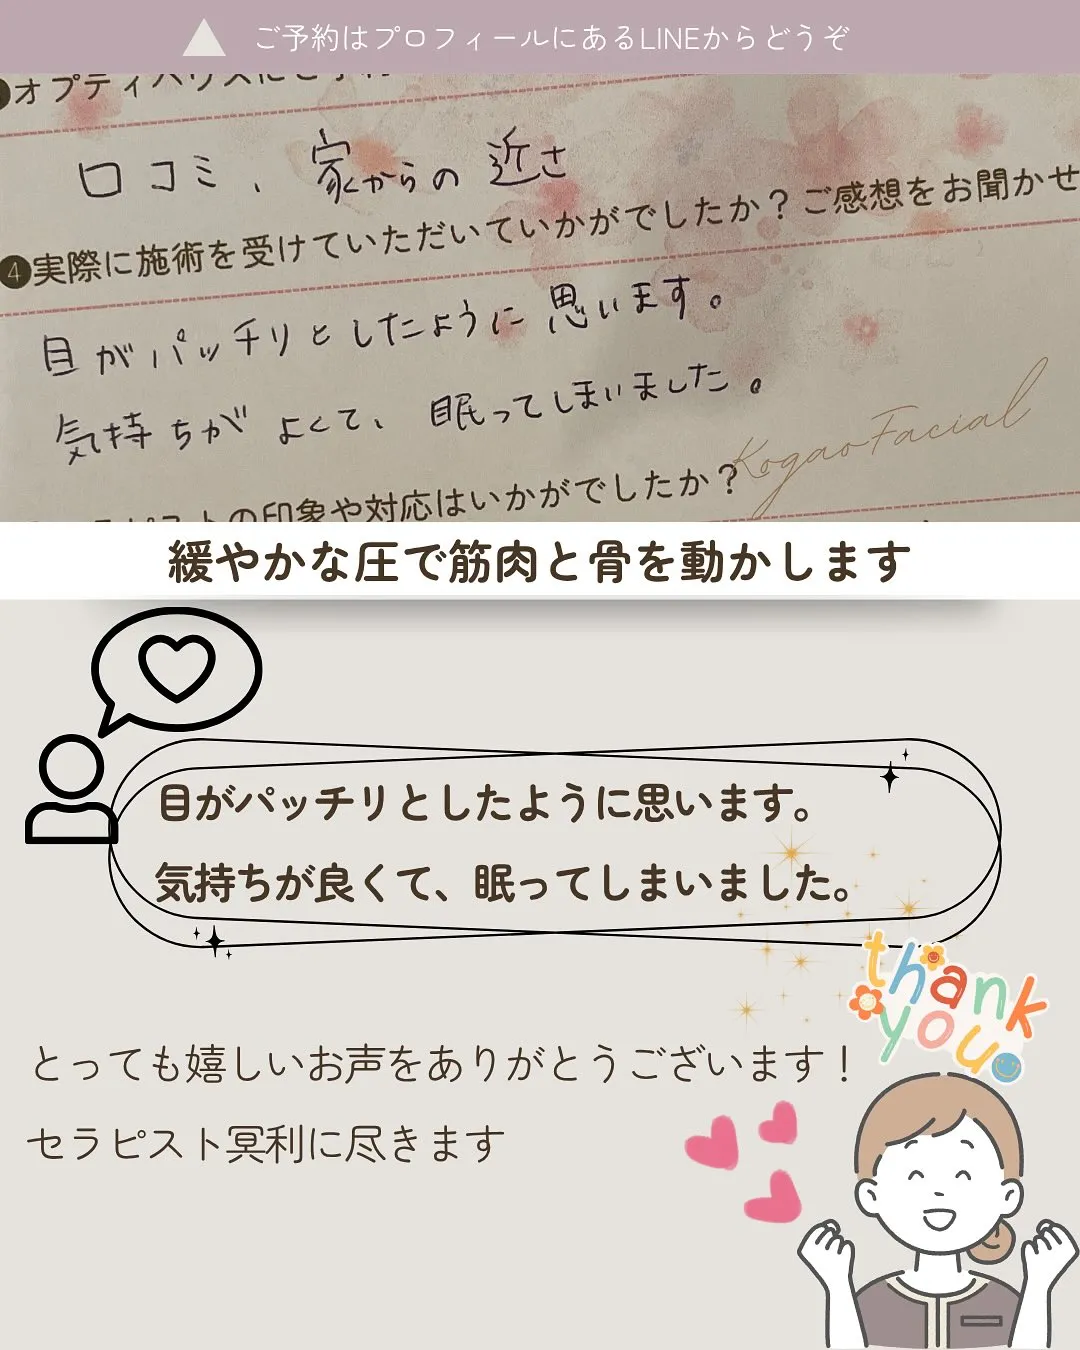 ご予約はプロフィールにあるLINEからどうぞ
口コミ、家からの近さ
❹実際に施術を受けていただいていかがでしたか？ご感想をお聞かせ
目がパッチリとしたように思います。
気持ちがよくて、眠ってしまいました。
KogaoFacial
の印象や対応はいかがでしたか？
緩やかな圧で筋肉と骨を動かします
目がパッチリとしたように思います。
気持ちが良くて、眠ってしまいました。
thank
you
とっても嬉しいお声をありがとうございます！
セラピスト冥利に尽きます